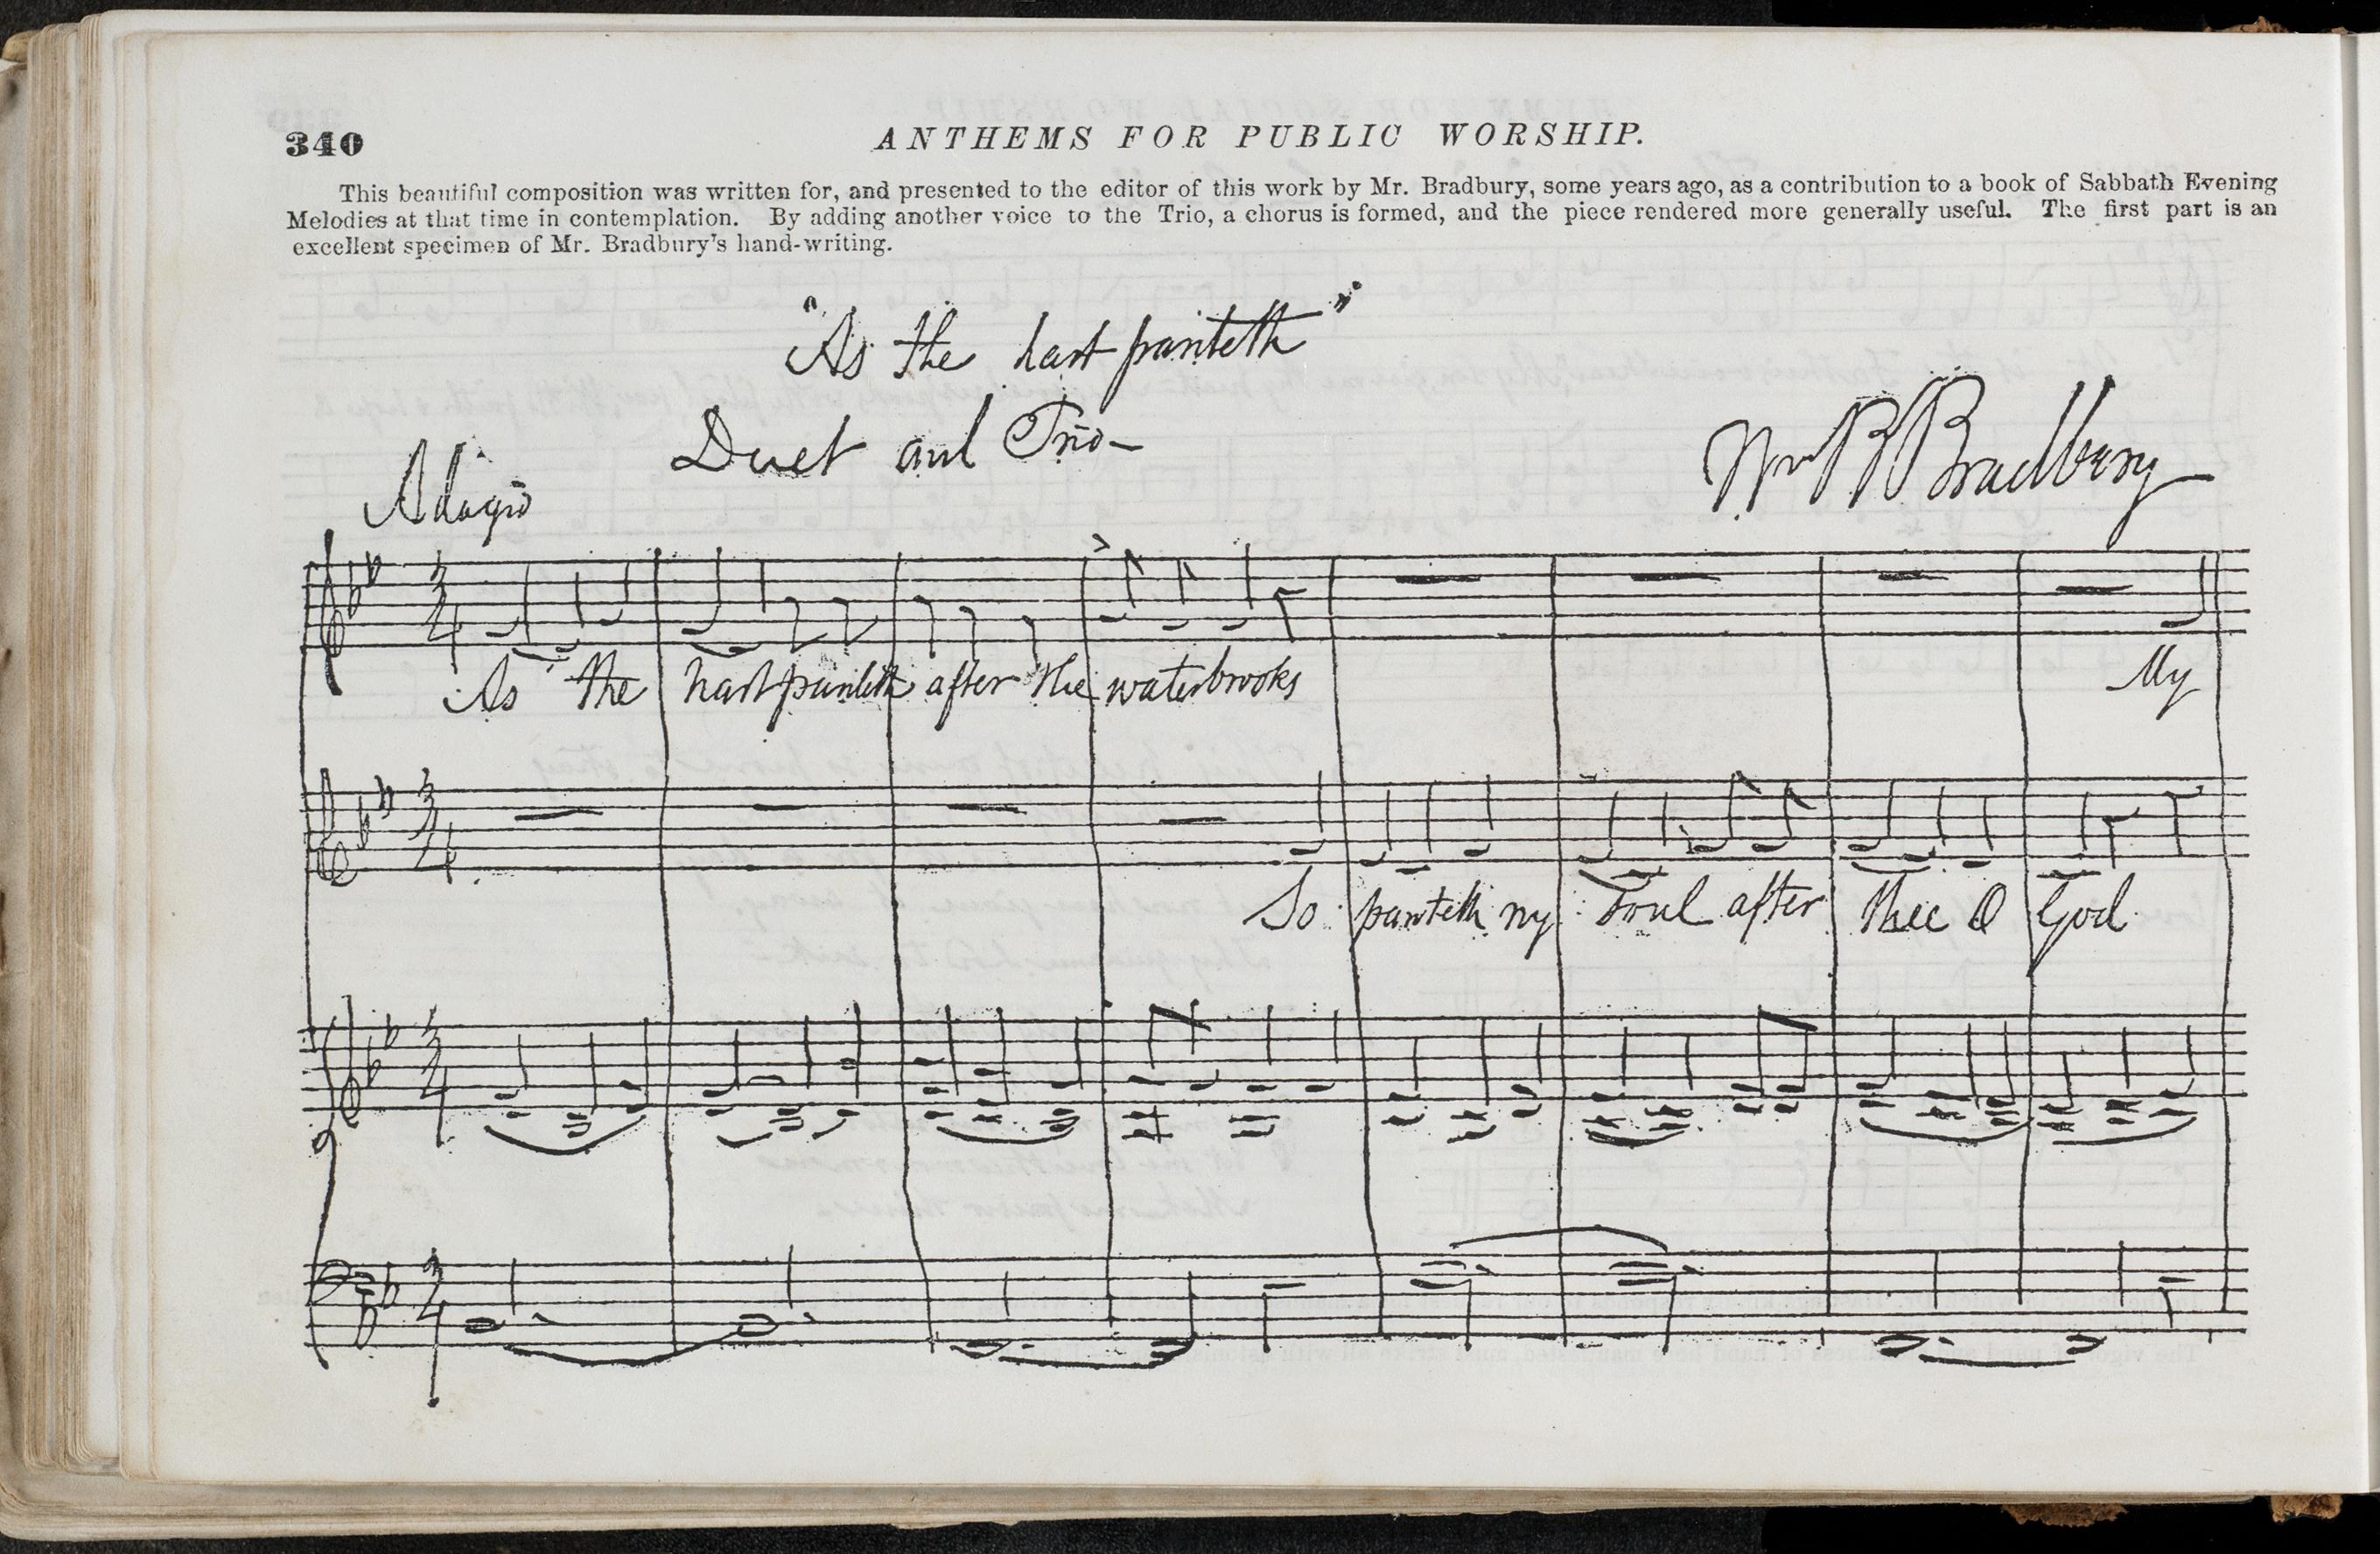 340
ANTHEMS FOR PUBLIC WORSHIP.
This beautiful composition was written for, and presented to the editor of this work by Mr. Bradbury, some years ago, as a contribution to a book of Sabbath Evening
Melodies at that time in contemplation. By adding another voice to the Trio, a chorus is formed, and the piece rendered more generally useful. The first part is an
excellent specimen of Mr. Bradbury's hand-writing.
"As the hart panteth"
Duet and Trio—
Wm B Bradbury
Adagio
As the hart panteth after the waterbrooks
My
So panteth my soul after thee O God